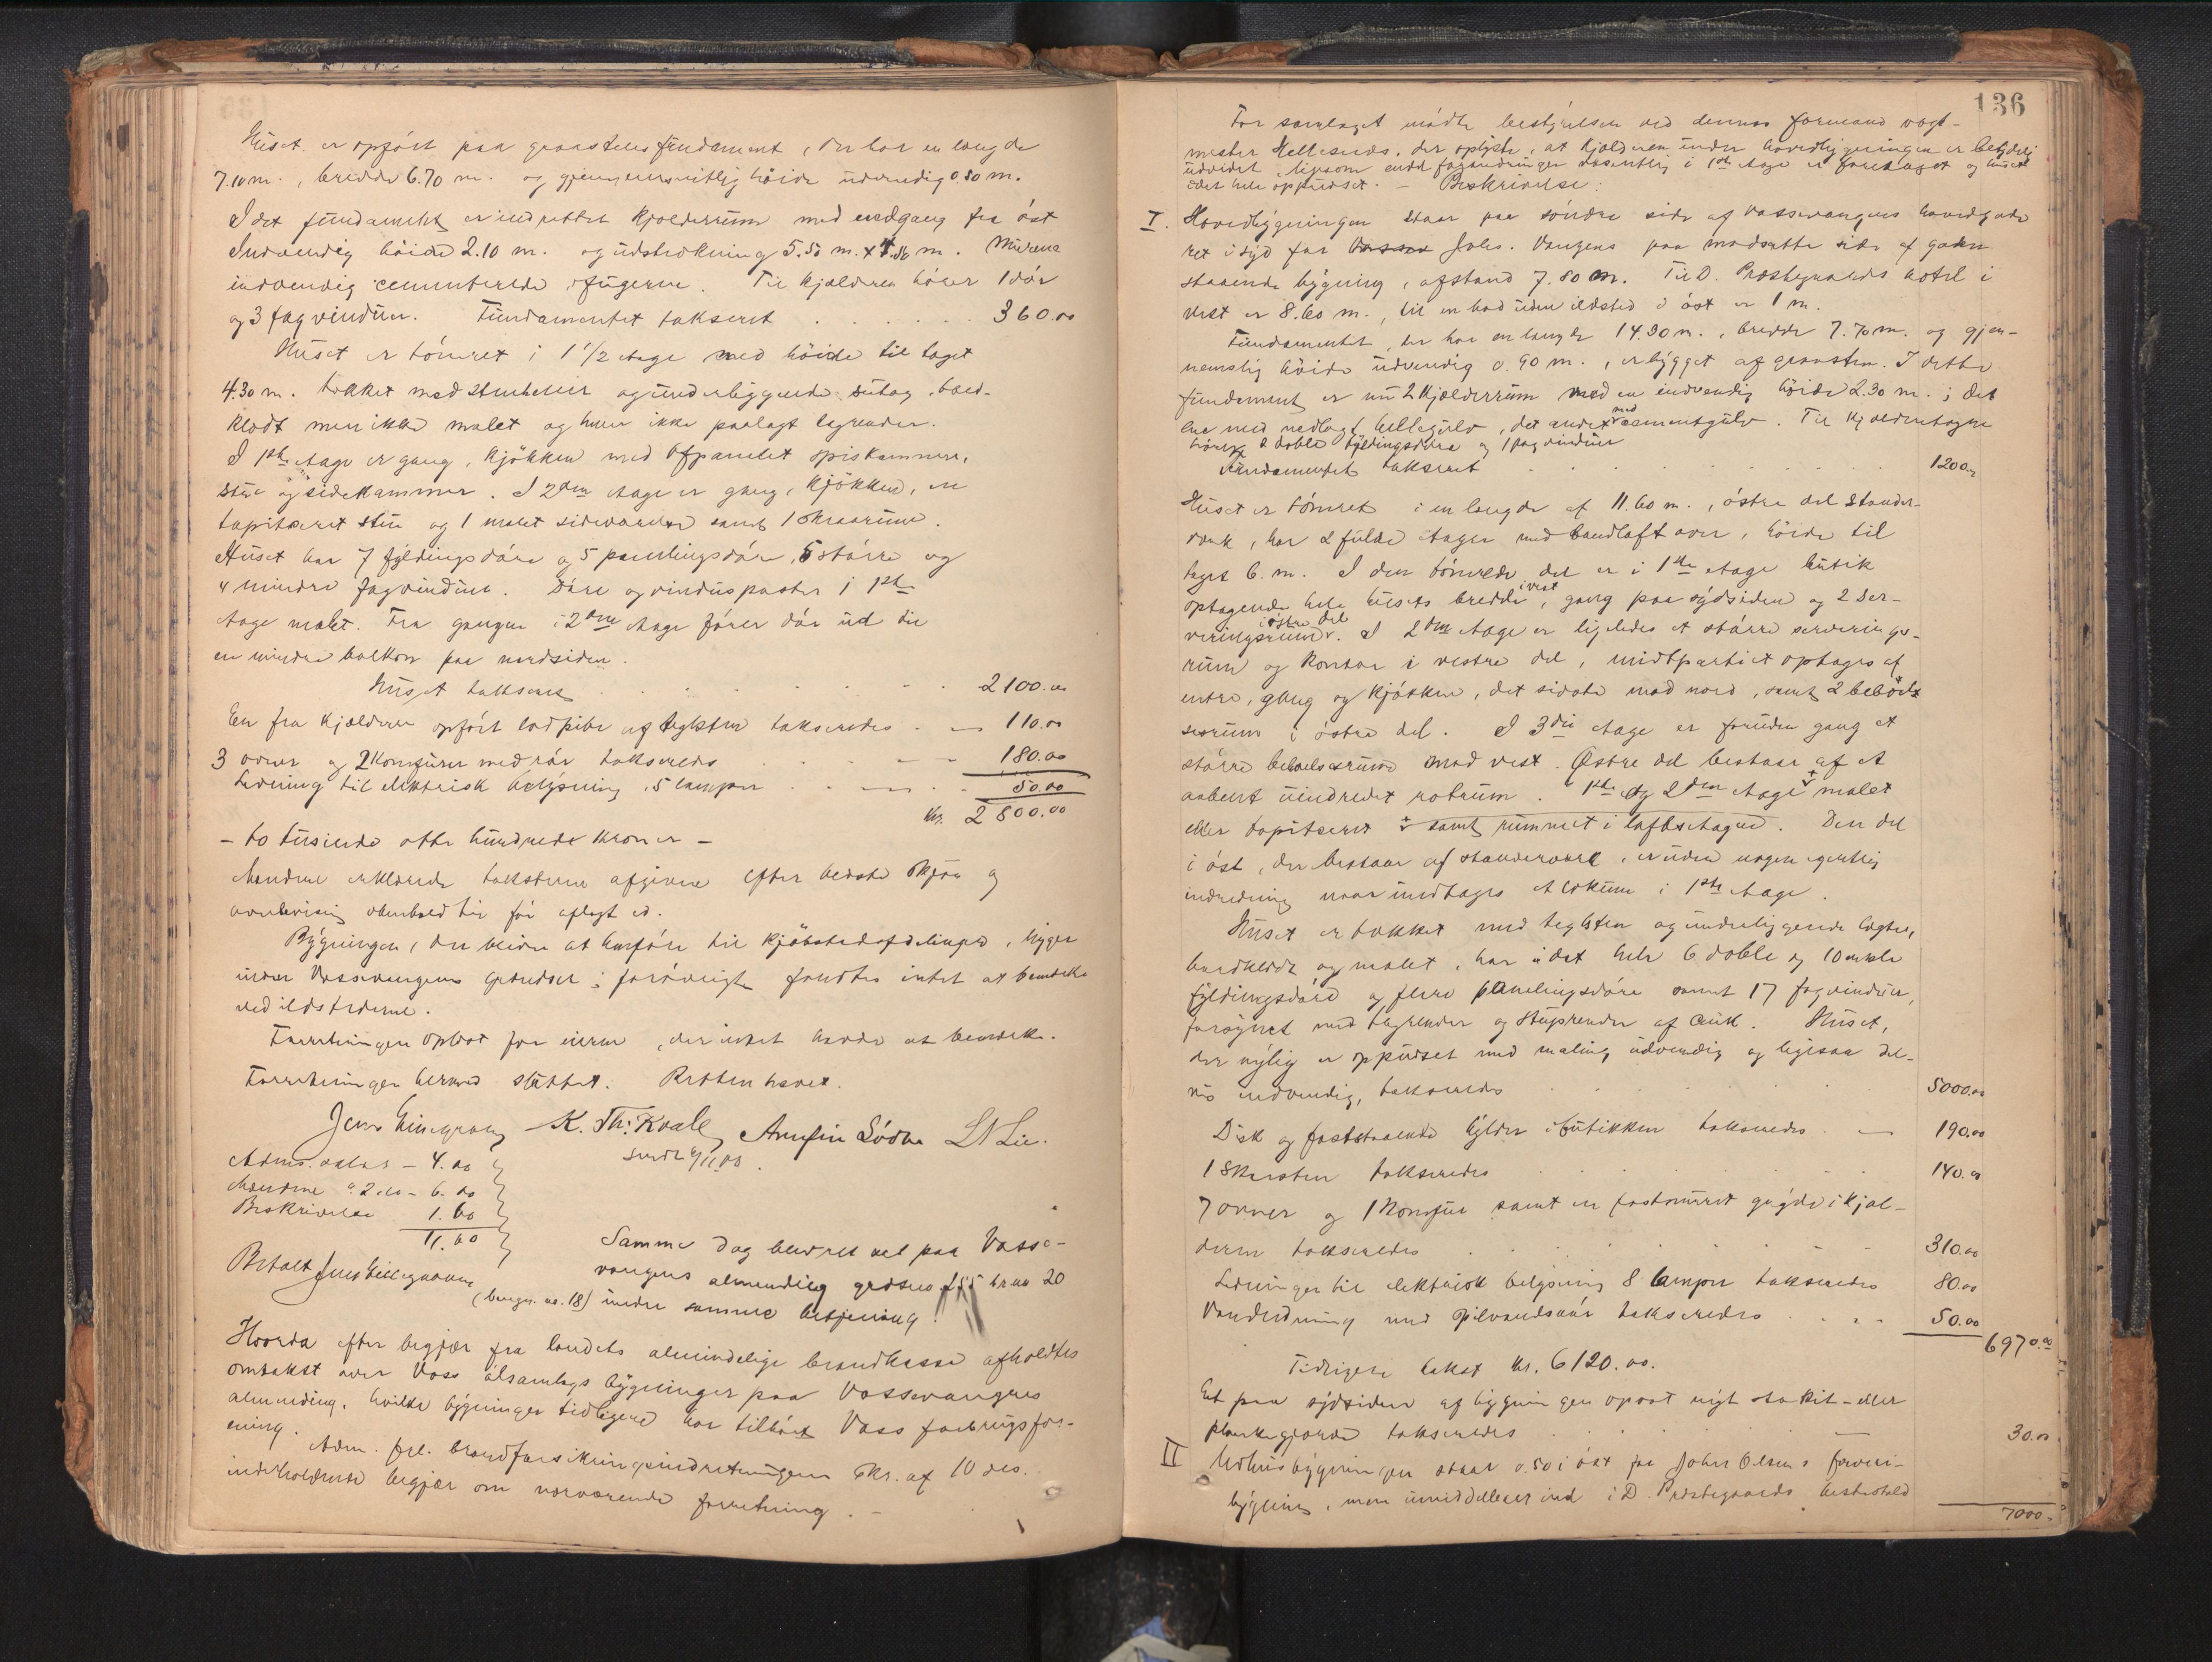 Huset er opført paa graastensfundament, der har en længde
7.10 m., bredde 6.70 m. og gjennemsnitlig høide udvendig 0.80 m.
I det fundamentet er indrettet kjælderrum med nedgang fra øst
Indvendig høide 2.10 m. og udstrekning 5.50 m. x m. Murene
indvendig cementerede i fugerne. Til kjælderen hører 1 dør
og 3 fag vinduer. Fundamentet takseret 360.00
Huset er tømret i 1 1/2 etage med høide til taget
4.30 m. tækket med stenheller og underliggende sutag, bord-
klædt men ikke malet og huer ikke paalagt tagrender.
I 1ste etage er gang, kjøkken med afpanelet spiskammer,
stue og sidekammer. I 2den etage er gang, kjøkken, en
tapitseret stue og 1 malet sideværelse samt 1 skraarum.
Huset har 7 fyldingsdøre og 5 panelingsdøre, 5 større og
4 mindre fagvinduer. Døre og vinduposter i 1ste
etage malet. Fra gangen i 2den etage fører dør ud til
en mindre balkon paa nordsiden.
Huset takseret 2100.00
En fra kjælderen opført lodpibe af teglsten takseredes 110.00
3 ovner og 2 komfurer med rør takseredes 180.00
Ledning til elektrisk belysning, 5 lamper 50.00
kr. 2800.00
- to tusinde otte hundrede kroner -
Mændene erklærede taksterne afgivne efter bedste skjøn og
overbevisning i henhold til før aflagt ed.
Bygningen, der bliver at henføre til kjøbstadsafdelingen, ligger
inden Vossevangens grændser; forøvrigt fandtes intet at bemerke
ved ildstederne.
Forretningen oplæst for eieren, der intet havde at bemerke.
Forretningen hermed sluttet. Retten hævet.
Jens K. Th. Kvale Arnfin Lødve L N Lie.
sendt 6/11.08.
Adms. 4.00
Mændene á 2.00 - 6.00
Beskrivelse 1.60
11.60
Betalt Jens
Samme dag blev ret sat paa Vosse-
vangens almending grdsno br.no 20
(bevgn. no. 18) under samme betjening.
Hvorda efter begjær fra landets almindelige brandkasse afholdtes
omtakst over Voss ølsamlags bygninger paa Vossevangens
almending, hvilke bygninger tidligere har tilhørt Voss forbrugsfor-
ening.
Adm. frl. brandforsikringsindretningens skr. af 10 des.
indeholdende begjær om nærværende forretning. -
136
For samlaget mødte bestyrelsen ved dennes formand vagt-
mester Hellesnes, der oplyste, at kjælderen under hovedbygningen er betydelig
udvidet, ligesom endel forandringer væsentlig i 1ste etage er foretaget og huset
i det hele oppudset. - Beskrivelse:
I. Hovedbygningen staar paa søndre side af Vossevangens hovedgade
ret i syd for Johs. Vangens paa modsatte side af gaden
staaende bygning, afstand 7.80 m. Til D. Præstegaards hotel i
vest er 8.60 m., til en bod uden ildsted i øst er 1 m.
Fundamentet, der har en længde 14.30 m., bredde 7.70 m. og gjen-
nemsnitlig høide udvendig 0.90 m., er bygget af graasten. I dette
fundament er nu 2 kjælderrum med en indvendig høide 2.30 m.; det
ene med nedlagt hellegulv, det andet med cementgulv. Til kjælderetagen
hører 2 doble fyldingsdøre og 1 fag vinduer
Fundamentet takseret 1200.00
Huset er tømret i en længde af 11.60 m., østre del stander-
verk, har 2 fulde etager med bandloft over, høide til
taget 6. m. I den tømrede del er i 1ste etage butik
optagende hele husets bredde i vest, gang paa sydsiden og 2 ser-
veringsrum i østre del. I 2den etage er ligeledes et større serverings-
rum og kontor i vestre del, midtpartiet optages af
entre, gang og kjøkken, det sidste mod nord, samt 2 beboel-
sesrum i østre del. I 3die etage er foruden gang et
større beboelsesrum mod vest. Østre del bestaar af et
aabent uindredet rotrum. 1ste og 2den etage malet
eller tapitseret samt rummet i loftsetagen. Den del
i øst, der bestaar af standerverk, er uden nogen egentlig
indredning naar undtages et lokum i 1ste etage.
Huset er tækket med teglsten og underliggende lægter,
bordklædt og malet, har i det hele 6 doble og 10 enkle
fyldingsdøre og flere panelingsdøre samt 17 fag vinduer,
forsynet med tagrender og stuprender af zink. Huset,
der nylig er oppudset med maling udvendig og ligesaa del-
vis indvendig, takseredes 5000.00
Disk og faststaaende hylder i butikken takseredes 190.00
1 skorsten takseredes 140.00
7 ovner og 1 komfur samt en fastmuret gryde i kjæl-
deren takseredes 310.00
Ledninger til elektrisk belysning 8 lamper takseredes 80.00
Vandledning med spilvandsrør takseredes 50.00
6970.00
Tidligere takst kr. 6120.00.
Et paa sydsiden af bygningen opsat nyt stakit- eller
plankegjærde takseredes 30.00
II Udhusbygningen staar 0.50 i øst fra John Olsens forret-
bygning, men umiddelbart ind i D. Præstegaards hestestald
7000.-